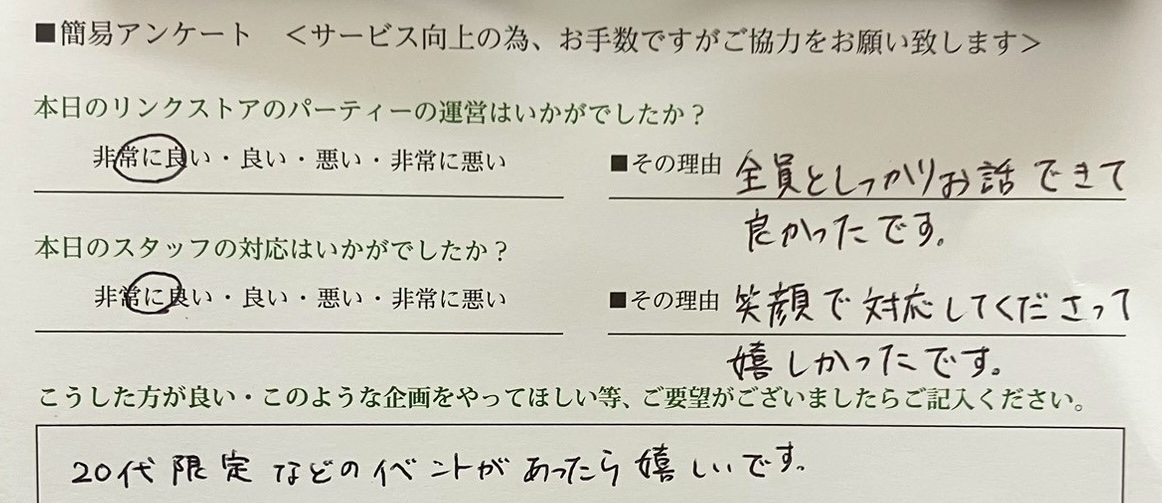 ■簡易アンケート ＜サービス向上の為、お手数ですがご協力をお願い致します＞
本日のリンクストアのパーティーの運営はいかがでしたか？
非常に良い・良い・悪い・非常に悪い
■その理由 全員としっかりお話できて
良かったです。
本日のスタッフの対応はいかがでしたか？
非常に良い・良い・悪い・非常に悪い
■その理由 笑顔で対応してくださって
嬉しかったです。
こうした方が良い・このような企画をやってほしい等、ご要望がございましたらご記入ください。
20代限定などのイベントがあったら嬉しいです。